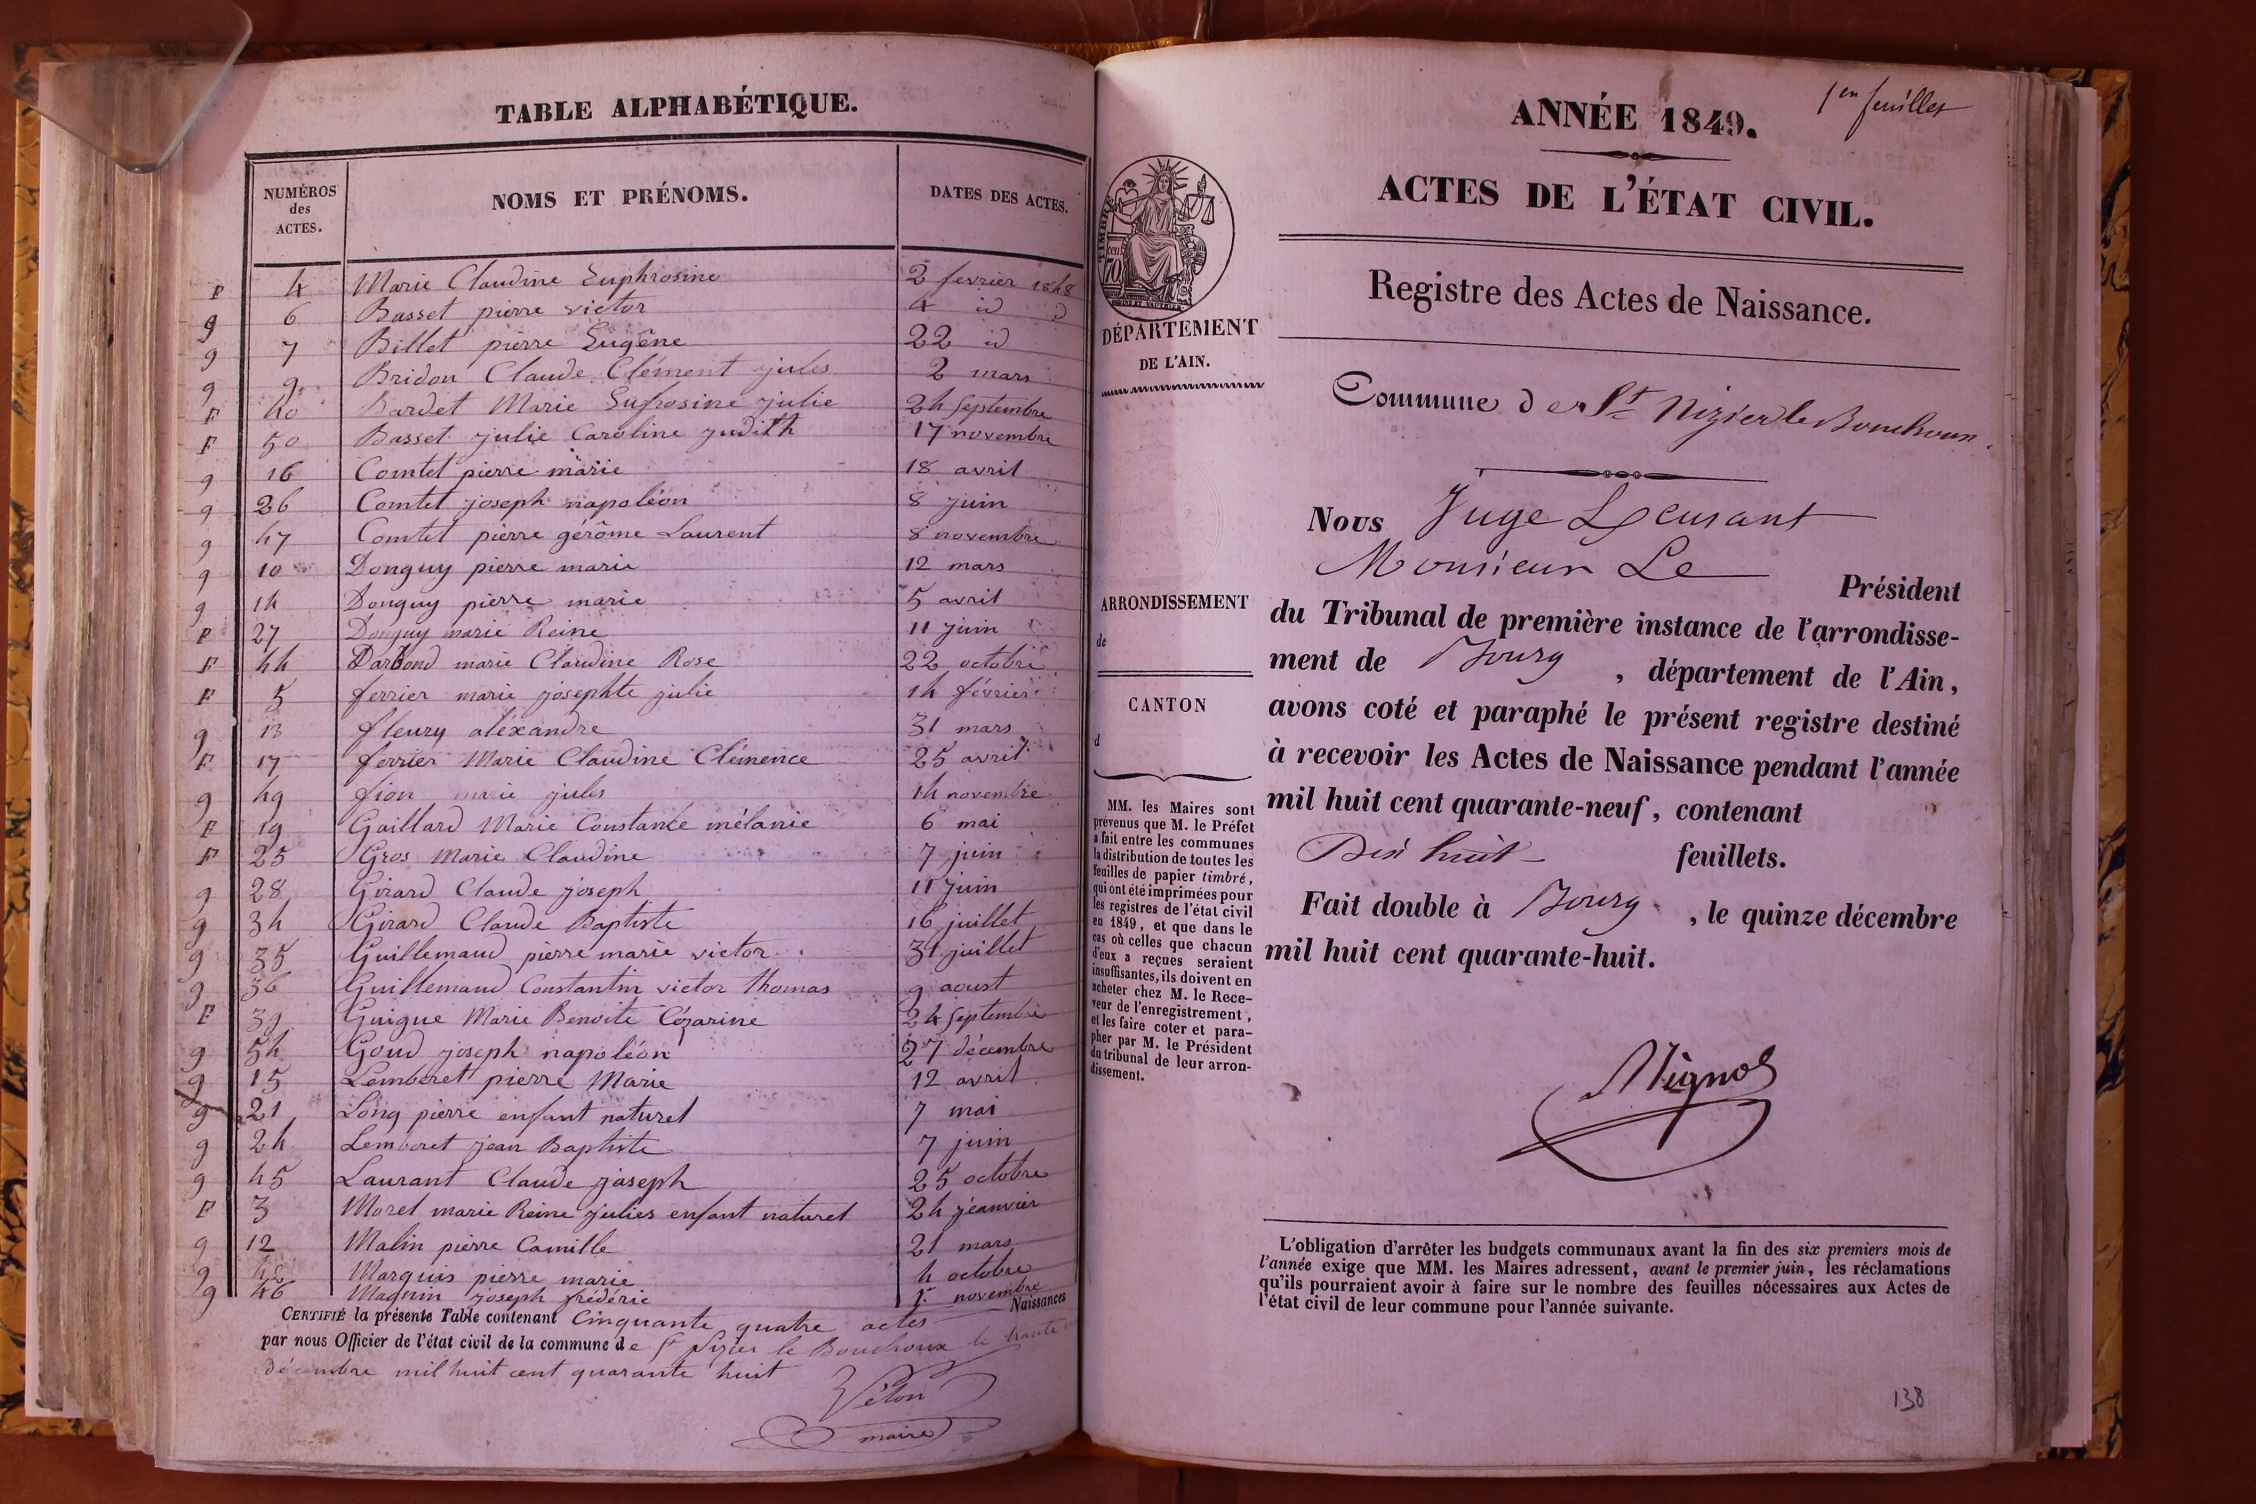 TABLE ALPHABÉTIQUE.
NUMÉROS des ACTES. NOMS ET PRÉNOMS. DATES DES ACTES.
F 4 Marie Claudine Euphrosine 2 fevrier 1848
g 6 Basset pierre victor 4 id d
g 7 Billet pierre Eugêne 22 id
g 9 Bridon Claude Clément jules 2 mars
F 40 Bardet Marie Eufrosine julie 24 septembre
F 50 Basset julie Caroline judith 17 novembre
g 16 Comtet pierre marie 18 avril
g 26 Comtet joseph napoléon 8 juin
g 47 Comtet pierre gérôme Laurent 8 novembre
g 10 Donguy pierre marie 12 mars
g 14 Donguy pierre marie 5 avril
F 27 Donguy marie Reine 11 juin
F 44 Darbond marie Claudine Rose 22 octobre
F 5 ferrier marie josephte julie 14 février
g 13 fleury aléxandre 31 mars
F 17 ferrier Marie Claudine Clémence 25 avril
g 49 fion marie jules 14 novembre
F 19 Gaillard Marie Constance mélanie 6 mai
F 25 Gros Marie Claudine 7 juin
g 28 Girard Claude joseph 11 juin
g 34 Girard Claude Baptiste 16 juillet
g 35 Guillemaud pierre marie victor 31 juillet
g 36 Guillemaud Constantin victor thomas 9 aoust
F 39 Guigue Marie Benoite Cézarine 24 septembre
g 54 Goud joseph napoléon 27 décembre
g 15 Lemberet pierre Marie 12 avril
g 21 Long pierre enfant naturel 7 mai
g 24 Lemberet jean Baptiste 7 juin
g 45 Laurant Claude joseph 25 octobre
F 3 Morel marie Reine julies enfant naturel 24 jéanvier
g 12 Malin pierre Camille 21 mars
g 42 Marquis pierre marie 4 octobre
g 46 Magnin joseph frédéric 1r novembre
Naissances
CERTIFIÉ la présente Table contenant Cinquante quatre actes
par nous Officier de l'état civil de la commune de St Nizier le Bouchoux le trente
décembre mil huit cent quarante huit
maire
1en feuillet
ANNÉE 1849.
ACTES DE L'ÉTAT CIVIL.
Registre des Actes de Naissance.
TIMBRE
70
DÉPARTEMENT
DE L'AIN.
Commune de St Nizier le Bouchoux.
Nous Juge
Monsieur Le Président
ARRONDISSEMENT
de
CANTON
d
du Tribunal de première instance de l'arrondisse-
ment de Bourg, département de l'Ain,
avons coté et paraphé le présent registre destiné
à recevoir les Actes de Naissance pendant l'année
mil huit cent quarante-neuf, contenant
Dix huit feuillets.
Fait double à Bourg, le quinze décembre
mil huit cent quarante-huit.
MM. les Maires sont
prévenus que M. le Préfet
a fait entre les communes
la distribution de toutes les
feuilles de papier timbré,
qui ont été imprimées pour
les registres de l'état civil
en 1849, et que dans le
cas où celles que chacun
d'eux a reçues seraient
insuffisantes, ils doivent en
acheter chez M. le Rece-
veur de l'enregistrement,
et les faire coter et para-
pher par M. le Président
du tribunal de leur arron-
dissement.
L'obligation d'arrêter les budgets communaux avant la fin des six premiers mois de
l'année exige que MM. les Maires adressent, avant le premier juin, les réclamations
qu'ils pourraient avoir à faire sur le nombre des feuilles nécessaires aux Actes de
l'état civil de leur commune pour l'année suivante.
138